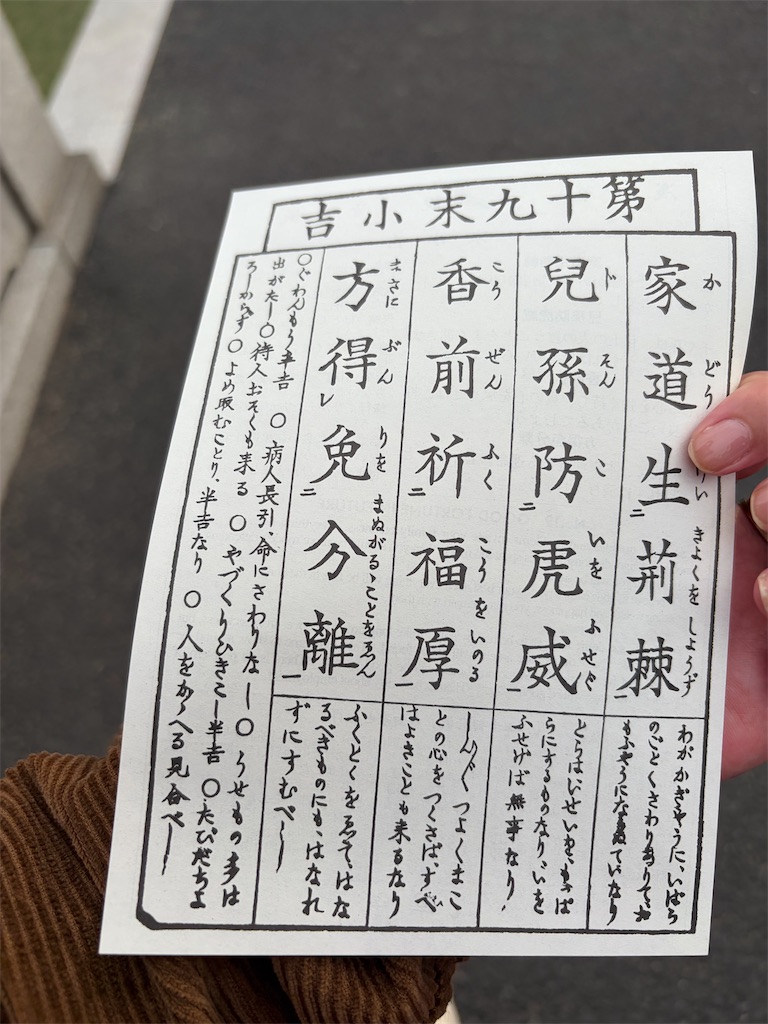 第十九末小吉
家道生二荊棘一
か どう きよくを しようず
わがかぎやうに、いばら
のごとくさわりありて
兒孫防二虎威一
じ そん こ いを ふせぐ
とらはいせいを、もつぱ
らにするものなり、いを
ふせげば無事なり、
香前祈二福厚一
こう ぜん ふく こうを いのる
つよくまこ
との心をつくさば、すべて
はよきことも来るなり
方得レ免二分離一
まさに ぶん りを まぬがるゝことをゑん
ふくとくをゑて、はな
るべきものにも、はなれ
ずにすむべし
○ぐわんもう半吉 ○病人長引、命にさわりなし○うせもの多は
出がたし○待人おそくも来る ○やづくりひきこし半吉 ○たびだちよ
ろしからず○よめ取むことり、半吉なり ○人をかゝへる見合べし